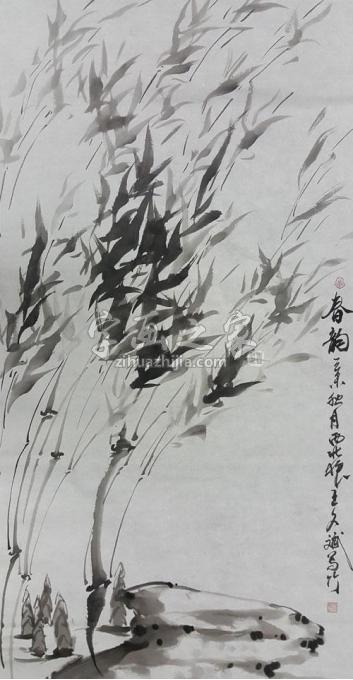 春韵
辛未秋月西北狼王文斌写竹
字画之家
zihuazhijia.com